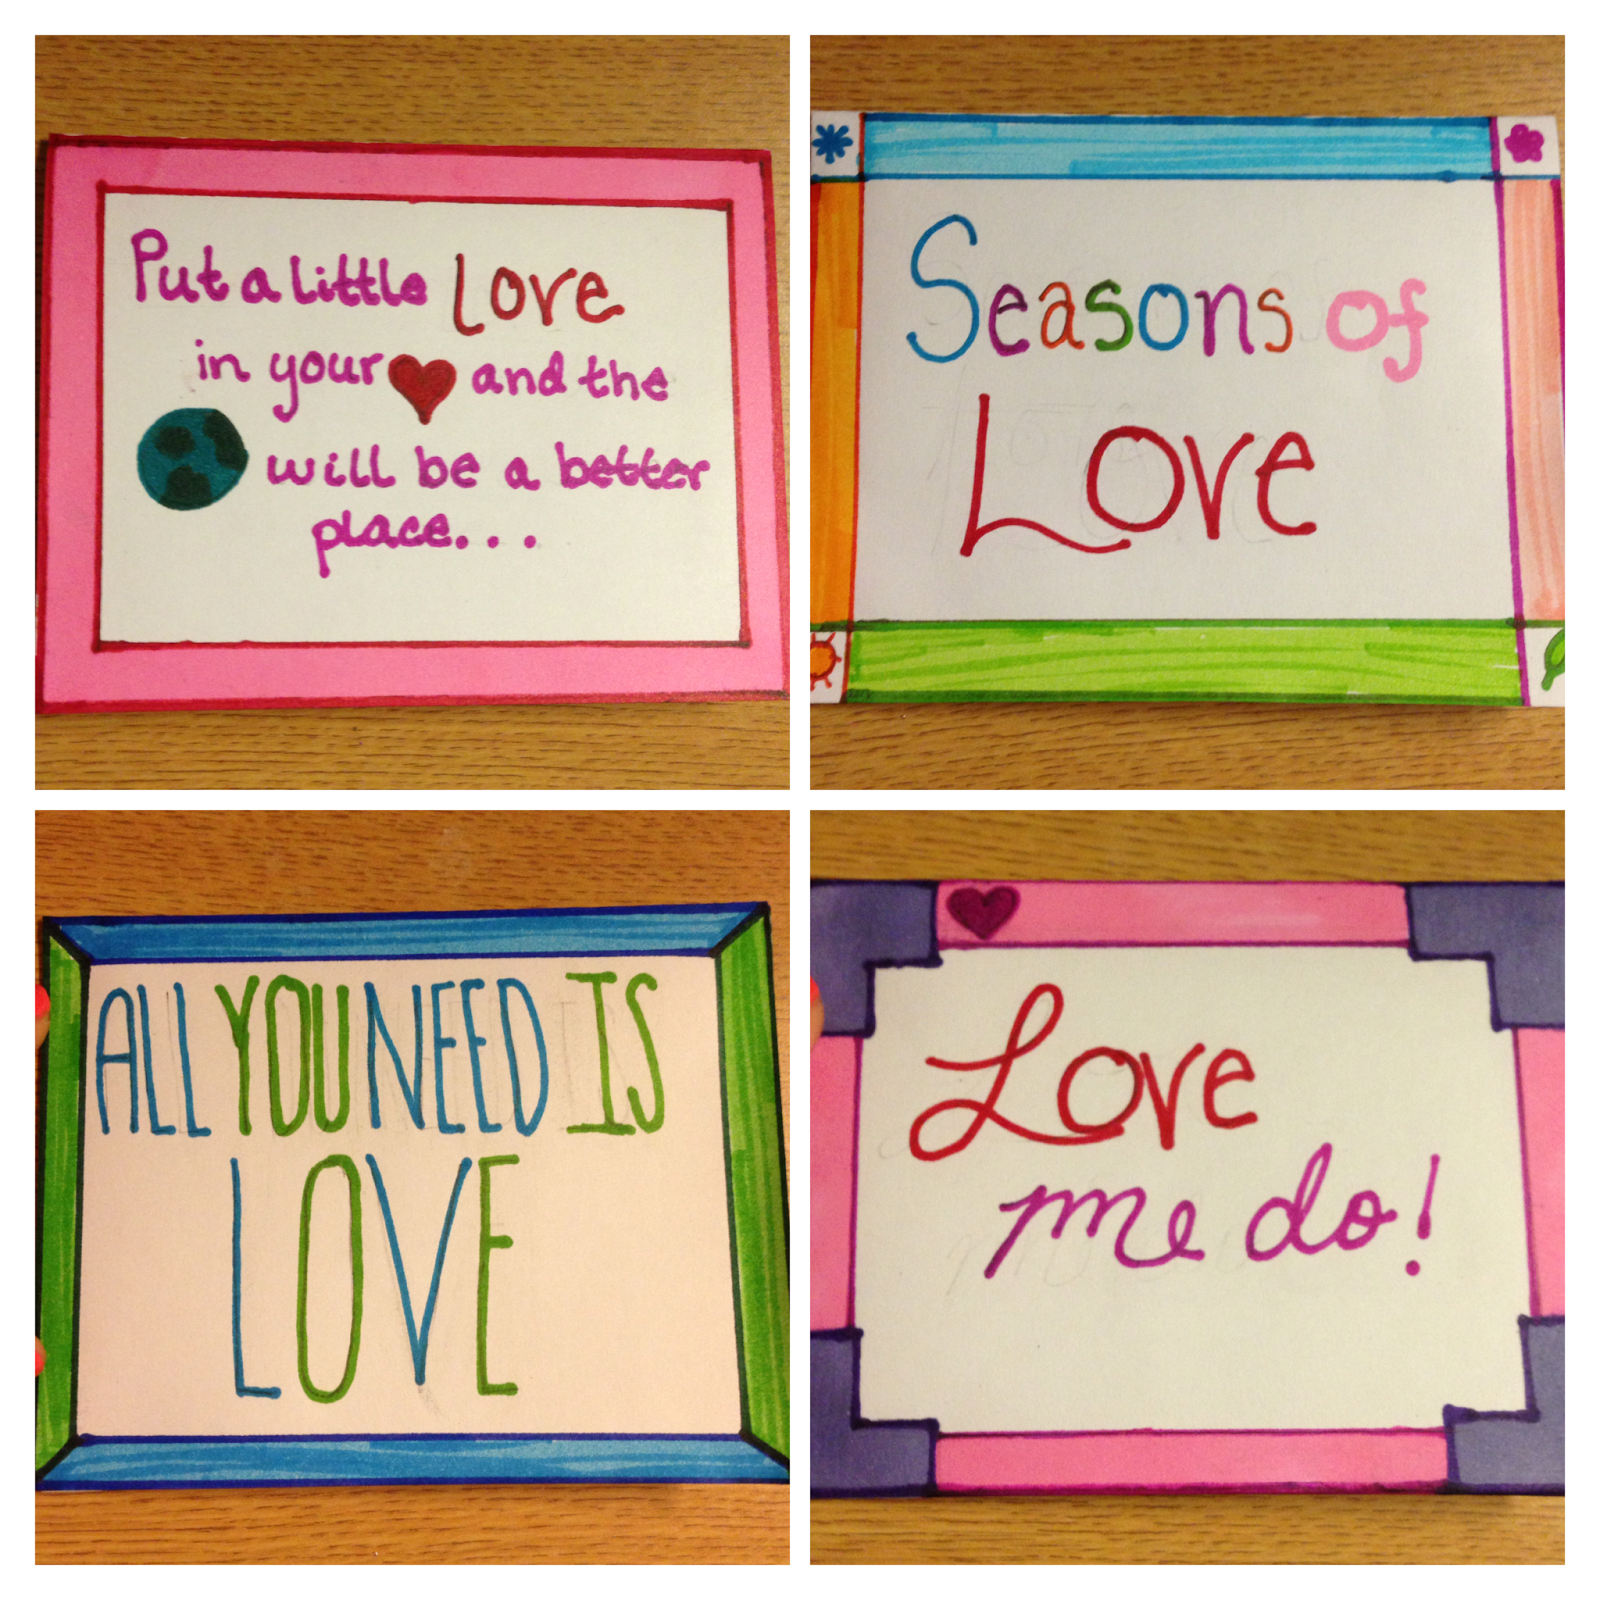 Put a little Love
in your and the
will be a better
place...
Seasons of
Love
ALL YOU NEED IS
LOVE
Love
me do!